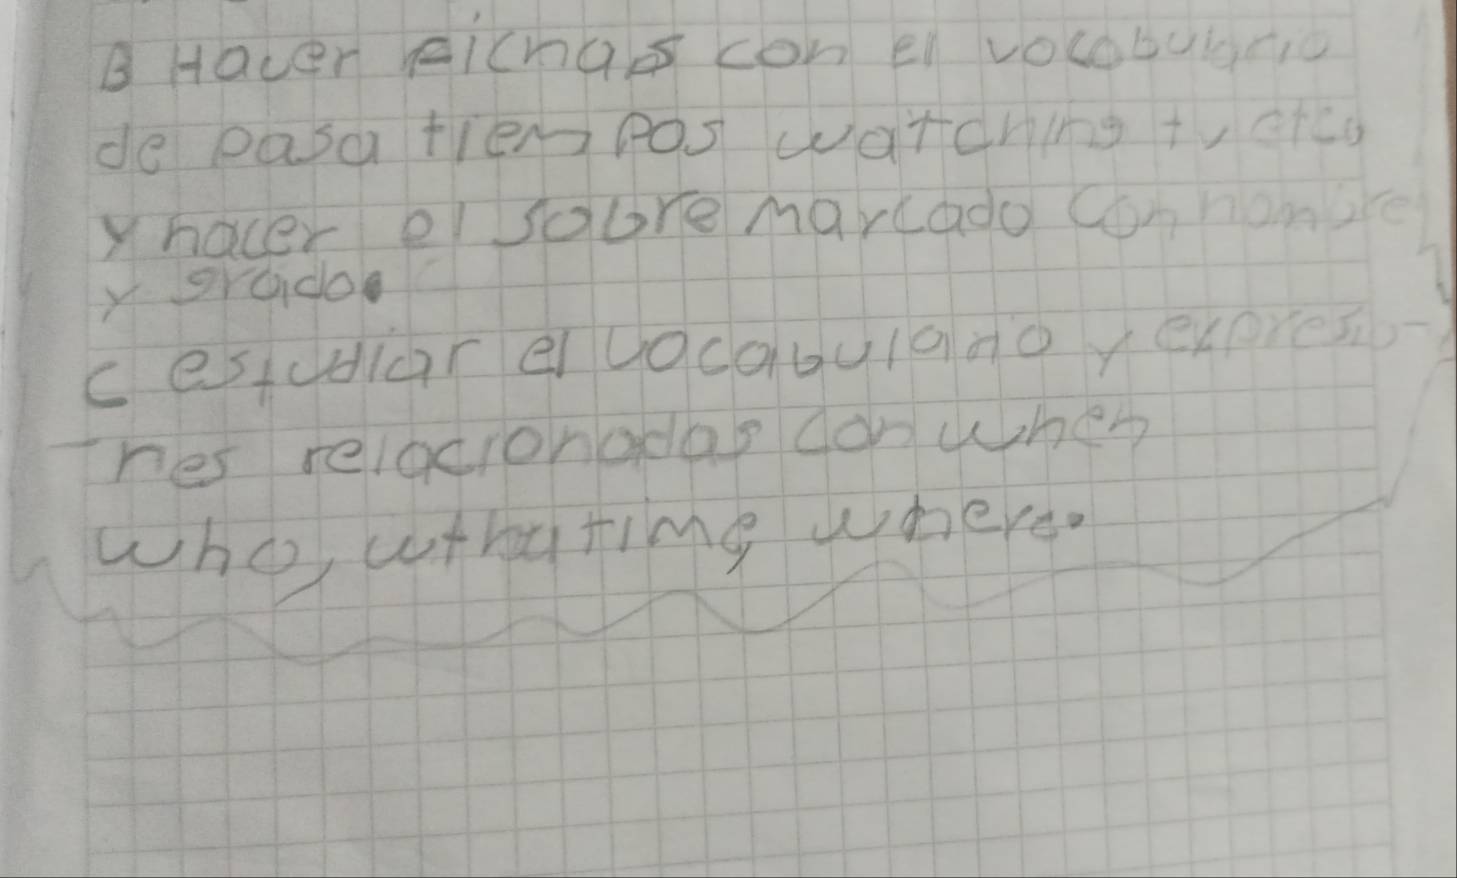 B Hacer fichas con el vocabulario
de pasa tiempos watching tv etc
y hacer el sobre marcado con nombre
y grado.
c estudiar el vocabulario y expresio-
nes relacionadas con when
who, what time, where.